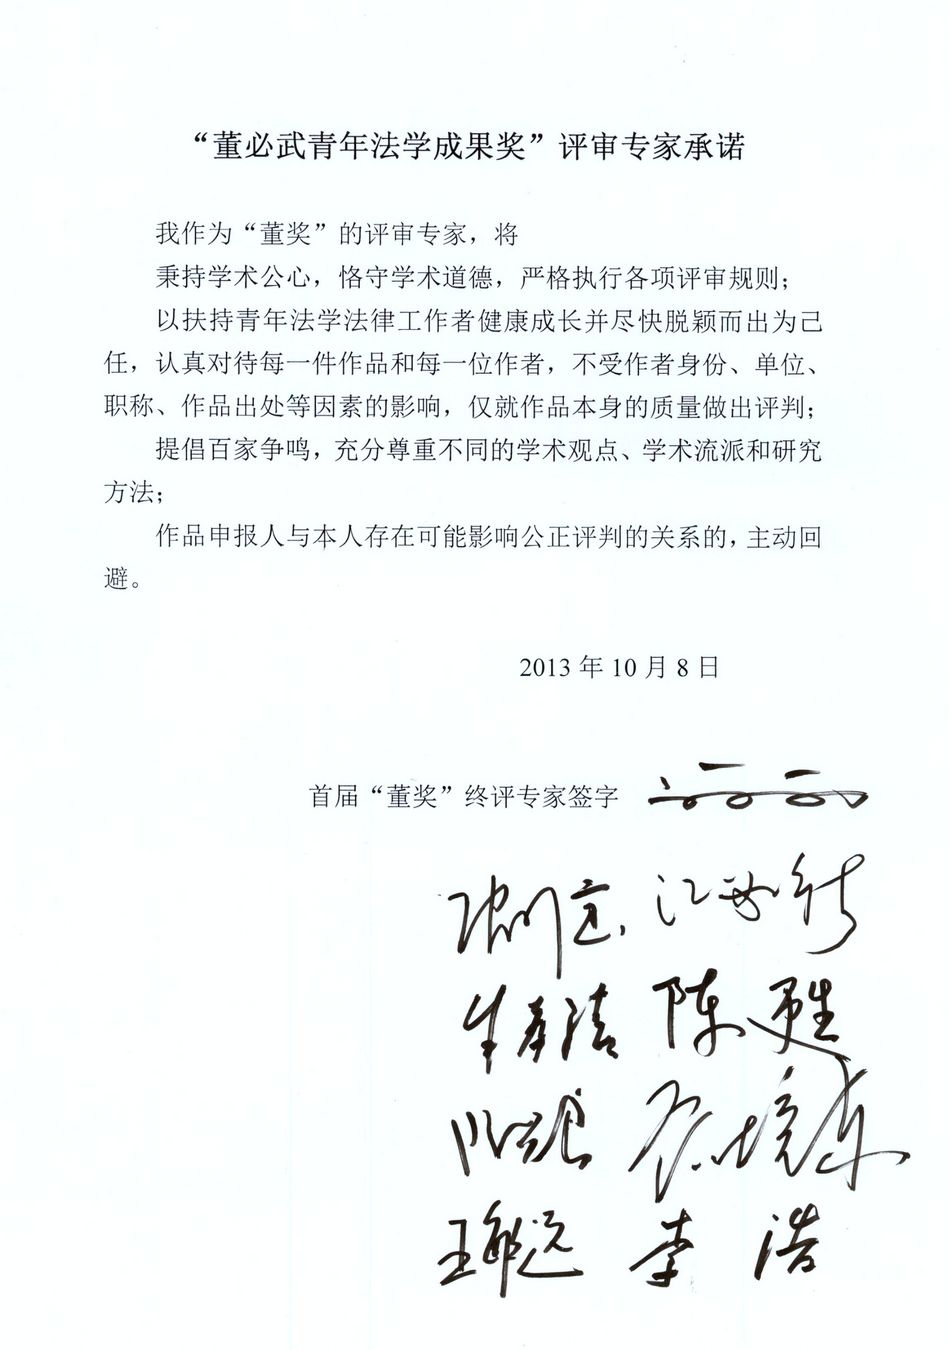 “董必武青年法学成果奖”评审专家承诺
我作为“董奖”的评审专家，将
秉持学术公心，恪守学术道德，严格执行各项评审规则；
以扶持青年法学法律工作者健康成长并尽快脱颖而出为己
任，认真对待每一件作品和每一位作者，不受作者身份、单位、
职称、作品出处等因素的影响，仅就作品本身的质量做出评判；
提倡百家争鸣，充分尊重不同的学术观点、学术流派和研究
方法；
作品申报人与本人存在可能影响公正评判的关系的，主动回
避。
2013 年 10 月 8 日
首届“董奖”终评专家签字
陈甦
李浩